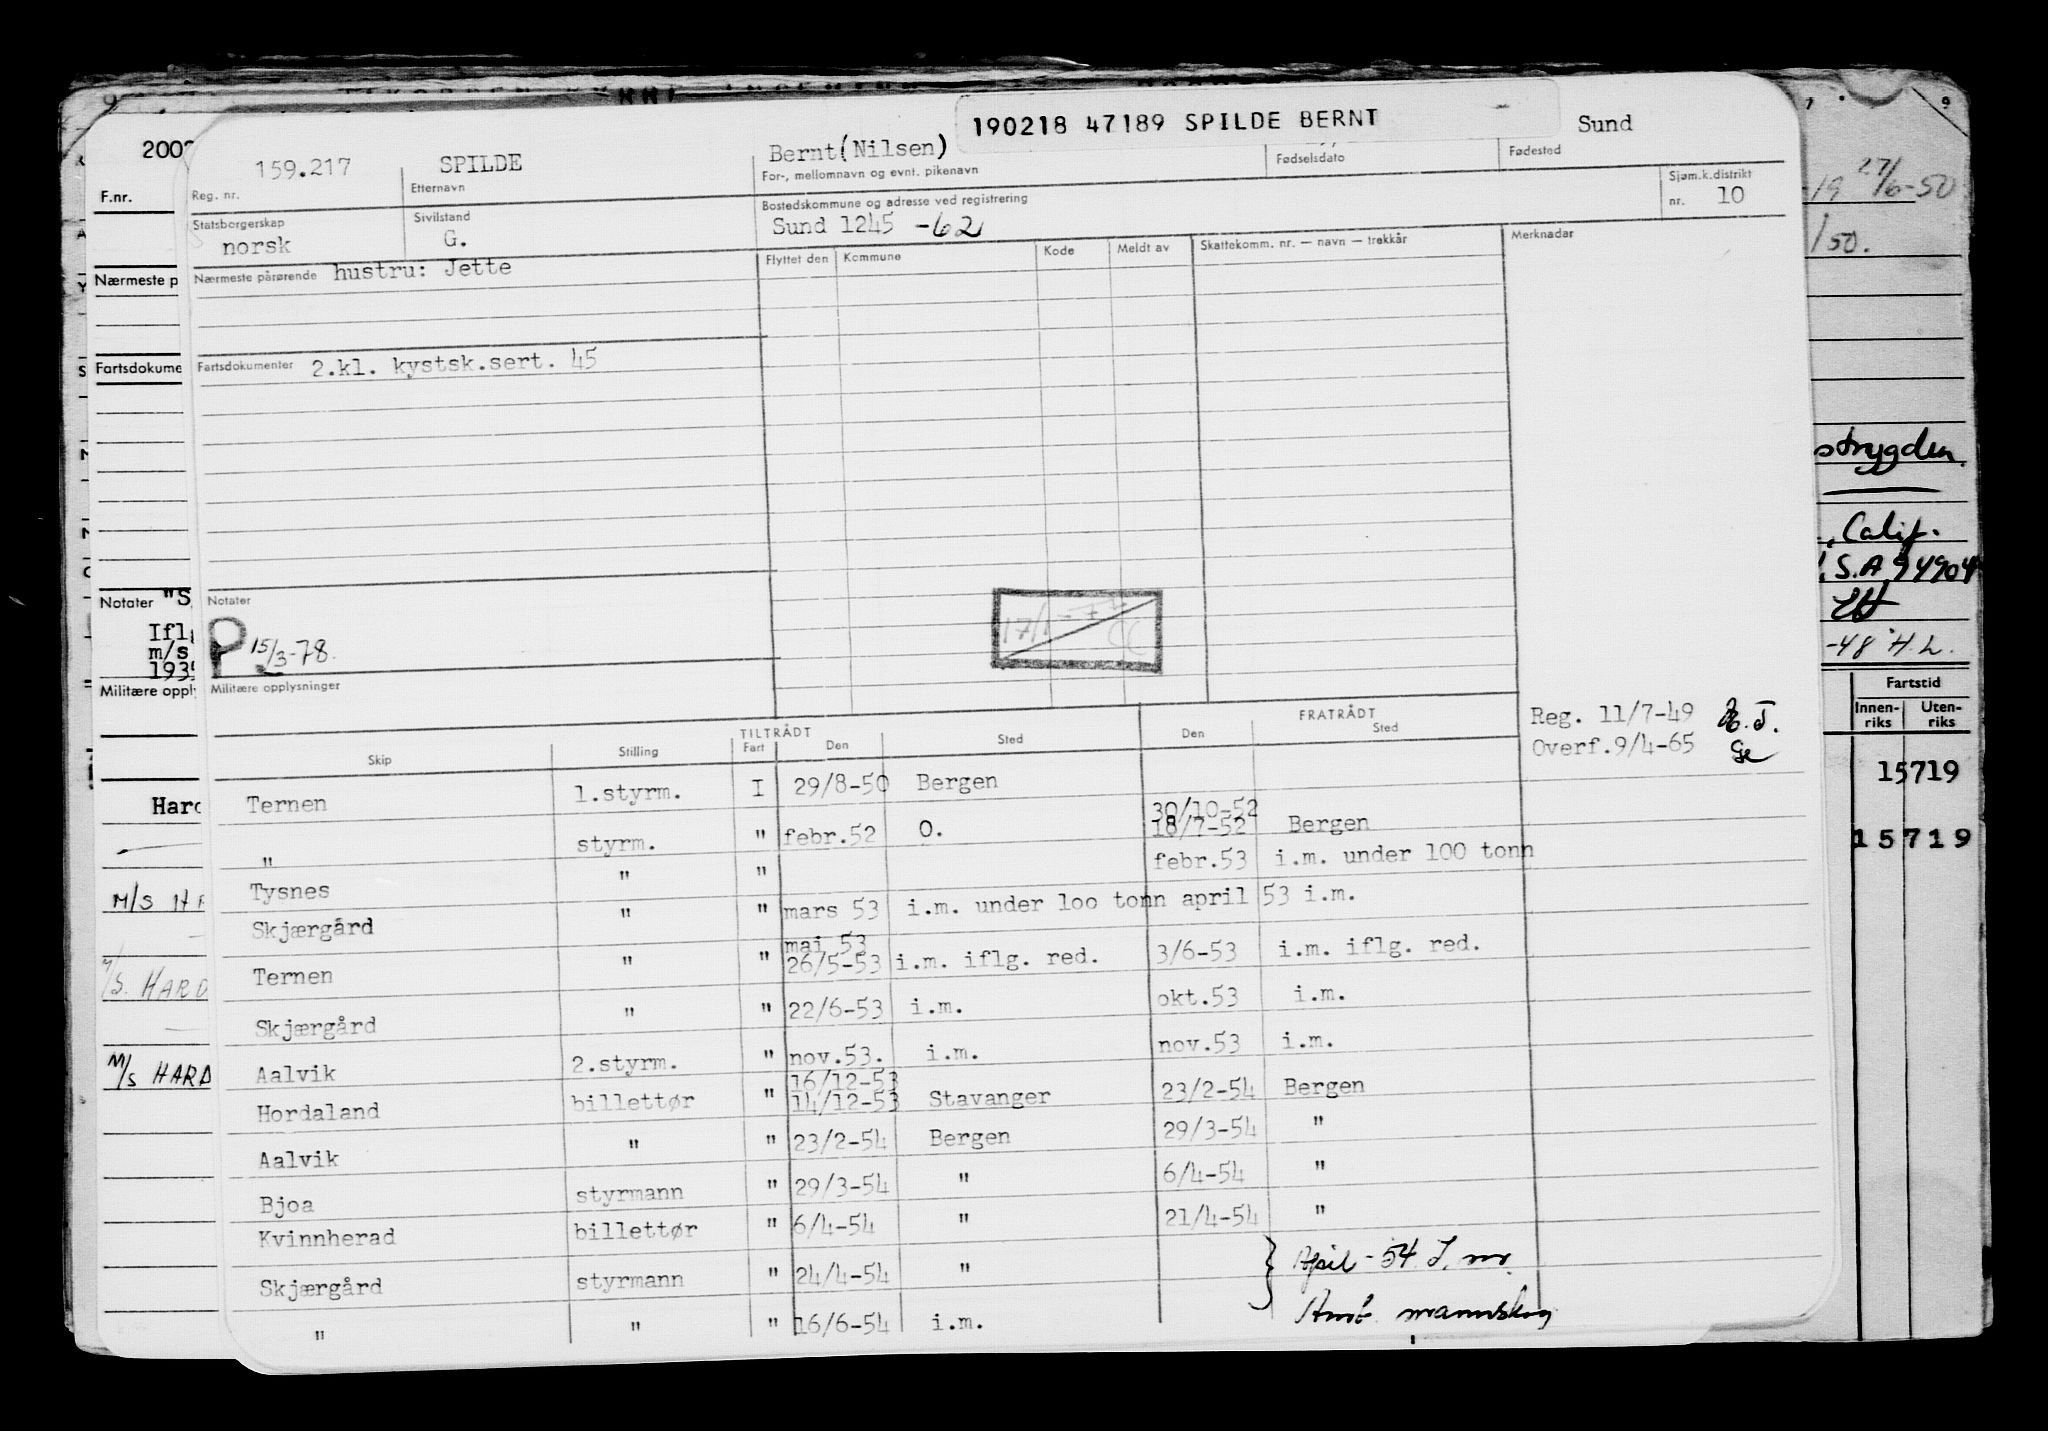 190218 47189 SPILDE BERNT
159.217 SPILDE Bernt(Nilsen) Sund
Reg. nr. Etternavn For-, mellomnavn og evnt. pikenavn Fødselsdato Fødested
Statsborgerskap Sivilstand Bostedskommune og adresse ved registrering Sjøm.k.distrikt
norsk G. Sund 1245 -62 nr. 10
Nærmeste pårørende hustru: Jette Flyttet den Kommune Kode Meldt av Skattekomm. nr. — navn — trekkår Merknadar
Fartsdokumenter 2.kl. kystsk.sert. 45
Notater
P 15/3-78.
17/1-77 CC
Militære opplysninger
Reg. 11/7-49
Overf.9/4-65
TILTRÅDT FRATRÅDT
Skip Stilling Fart Den Sted Den Sted
Ternen 1.styrm. I 29/8-50 Bergen 30/10-52
" styrm. " febr.52 O. 18/7-52 Bergen
Tysnes " " febr.53 i.m. under 100 tonn
Skjærgård " " mars 53 i.m. under loo tonn april 53 i.m.
mai 53
Ternen " " 26/5-53 i.m. iflg. red. 3/6-53 i.m. iflg. red.
Skjærgård " " 22/6-53 i.m. okt.53 i.m.
Aalvik 2.styrm. " nov.53. i.m. nov.53 i.m.
16/12-53
Hordaland billettør " 14/12-53 Stavanger 23/2-54 Bergen
Aalvik " " 23/2-54 Bergen 29/3-54 "
Bjoa styrmann " 29/3-54 " 6/4-54 "
Kvinnherad billettør " 6/4-54 " 21/4-54 "
Skjærgård styrmann " 24/4-54 " April-54 I. m.
" " " 16/6-54 i.m.
2002
F.nr.
Nærmeste p
Fartsdokume
Notater "S
Ifl
m/s
193
Militære opply
Hard
M/S HA
M/S. HARD
M/S HARD
27/6-50
/50.
strygden.
, Calif.
S.A 94904
-48 H.L.
Fartstid
Innen- Uten-
riks riks
15719
15719